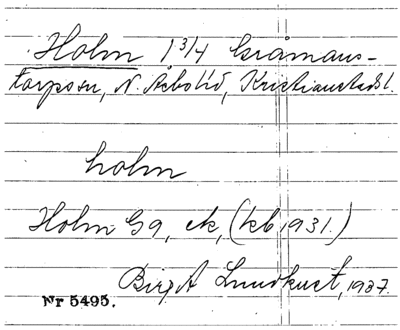 Holm 1 3/4 Gråmans-
torps sn, N. Åsbo hd, Kristianstads l.
holm
Holm G 9, ek, (kb 1931.)
Birgit Lundkvist, 1937.
Nr 5495.